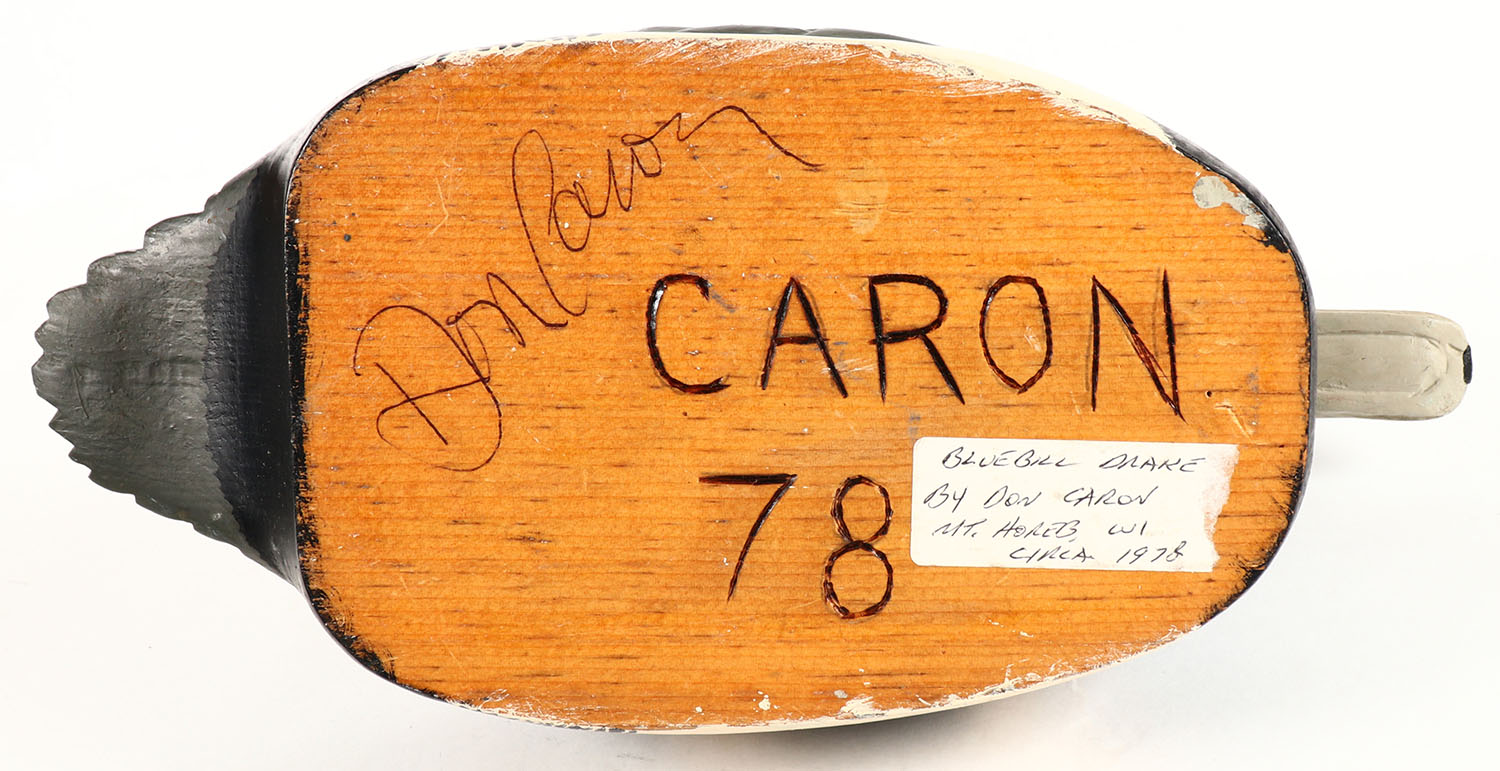 Don Caron
CARON
78
BLUEBILL DRAKE
By DON CARON
MT. HOREB, WI
CIRCA 1978